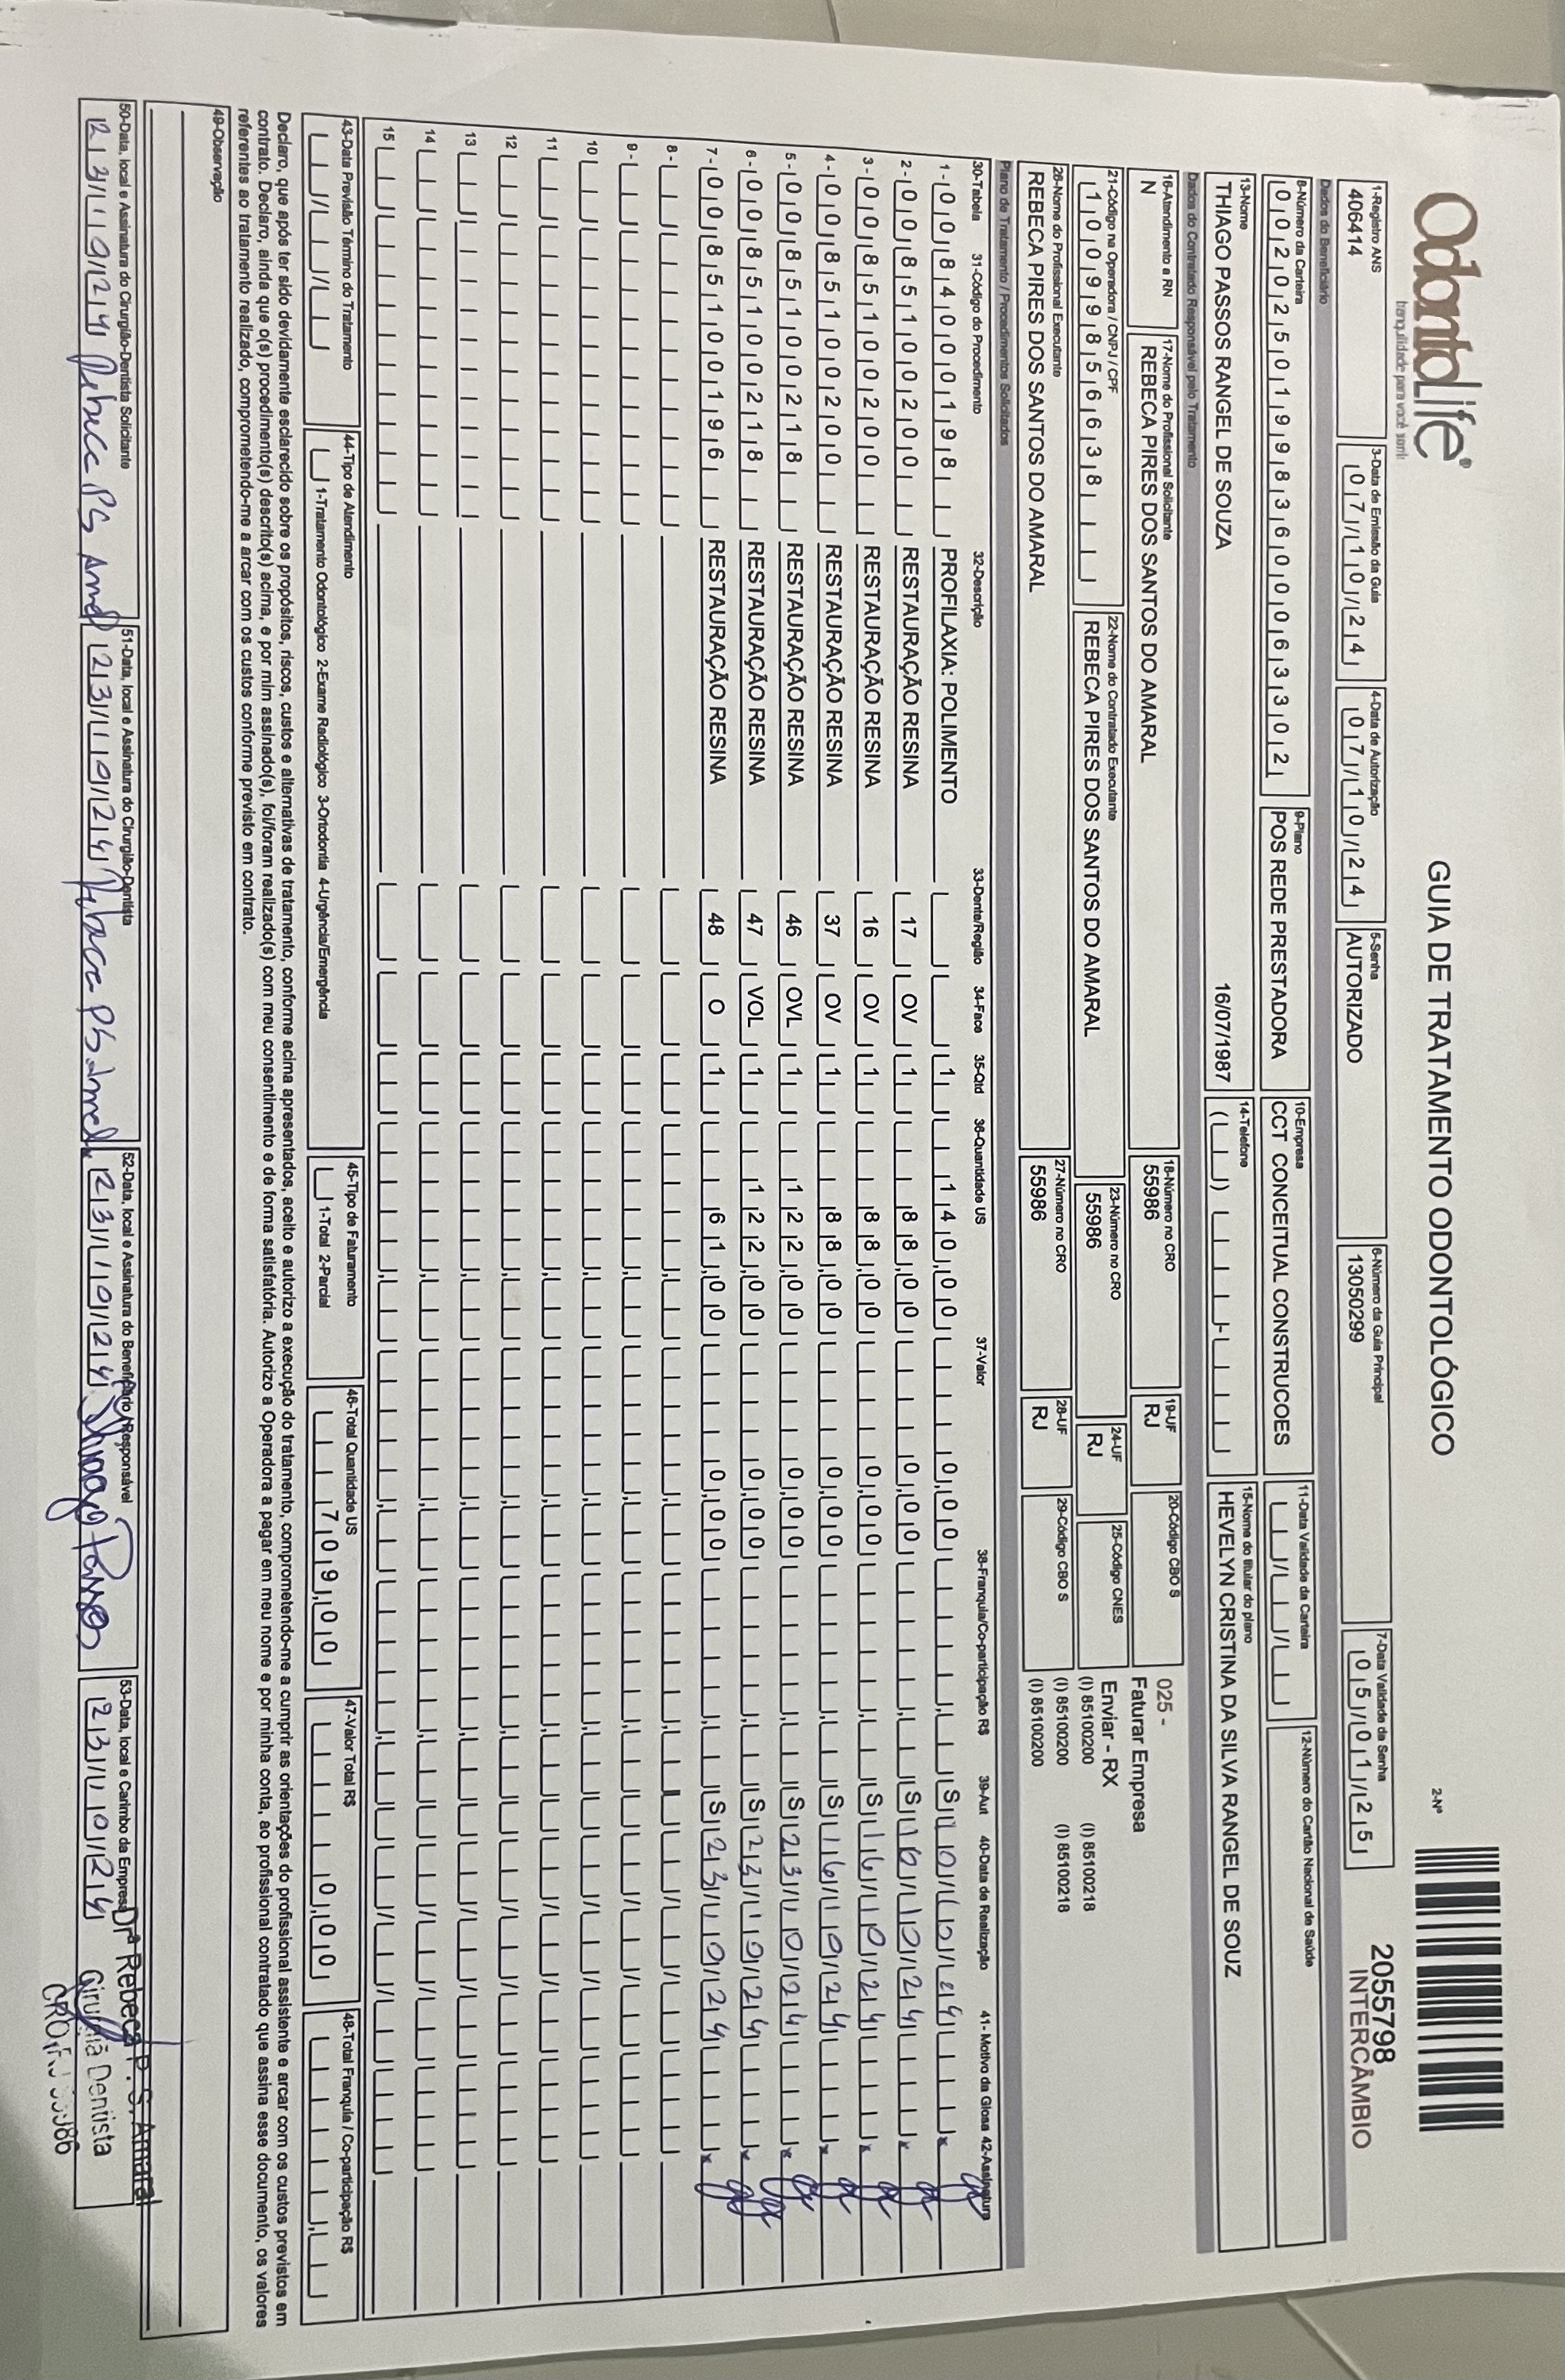 OdontoLife®
tranquilidade para você sorrir
GUIA DE TRATAMENTO ODONTOLÓGICO
2-Nº
2055798
INTERCÂMBIO
1-Registro ANS
406414
3-Data de Emissão da Guia
07/10/24
4-Data de Autorização
07/10/24
5-Senha
AUTORIZADO
6-Número da Guia Principal
13050299
7-Data Validade da Senha
05/01/25
Dados do Beneficiário
8-Número da Carteira
00202501998360006330 2
9-Plano
POS REDE PRESTADORA
10-Empresa
CCT CONCEITUAL CONSTRUCOES
11-Data Validade da Carteira
12-Número do Cartão Nacional de Saúde
13-Nome
THIAGO PASSOS RANGEL DE SOUZA 16/07/1987
14-Telefone
15-Nome do titular do plano
HEVELYN CRISTINA DA SILVA RANGEL DE SOUZ
Dados do Contratado Responsável pelo Tratamento
16-Atendimento a RN
N
17-Nome do Profissional Solicitante
REBECA PIRES DOS SANTOS DO AMARAL
18-Número no CRO
55986
19-UF
RJ
20-Código CBO S
025 -
Faturar Empresa
21-Código na Operadora / CNPJ / CPF
10099856638
22-Nome do Contratado Executante
REBECA PIRES DOS SANTOS DO AMARAL
23-Número no CRO
55986
24-UF
RJ
25-Código CNES
Enviar - RX
(I) 85100200 (I) 85100218
(I) 85100200 (I) 85100218
(I) 85100200
26-Nome do Profissional Executante
REBECA PIRES DOS SANTOS DO AMARAL
27-Número no CRO
55986
28-UF
RJ
29-Código CBO S
Plano de Tratamento / Procedimentos Solicitados
30-Tabela 31-Código do Procedimento 32-Descrição 33-Dente/Região 34-Face 35-Qtd 36-Quantidade US 37-Valor 38-Franquia/Co-participação R$ 39-Aut 40-Data de Realização 41- Motivo da Glosa 42-Assinatura
1 - 00 84000198 PROFILAXIA: POLIMENTO 1 140,00 0,00 S
2 - 00 85100200 RESTAURAÇÃO RESINA 17 OV 1 88,00 0,00 S 16/10/24
3 - 00 85100200 RESTAURAÇÃO RESINA 16 OV 1 88,00 0,00 S 16/10/24
4 - 00 85100200 RESTAURAÇÃO RESINA 37 OV 1 88,00 0,00 S 16/10/24
5 - 00 85100218 RESTAURAÇÃO RESINA 46 OVL 1 122,00 0,00 S 23/10/24
6 - 00 85100218 RESTAURAÇÃO RESINA 47 VOL 1 122,00 0,00 S 23/10/24
7 - 00 85100196 RESTAURAÇÃO RESINA 48 O 1 61,00 0,00 S 23/10/24
8 -
9 -
10
11
12
13
14
15
43-Data Previsão Término do Tratamento
44-Tipo de Atendimento
1-Tratamento Odontológico 2-Exame Radiológico 3-Ortodontia 4-Urgência/Emergência
45-Tipo de Faturamento
1-Total 2-Parcial
46-Total Quantidade US
709,00
47-Valor Total R$
0,00
48-Total Franquia / Co-participação R$
Declaro, que após ter sido devidamente esclarecido sobre os propósitos, riscos, custos e alternativas de tratamento, conforme acima apresentados, aceito e autorizo a execução do tratamento, comprometendo-me a cumprir as orientações do profissional assistente e arcar com os custos previstos em
contrato. Declaro, ainda que o(s) procedimento(s) descrito(s) acima, e por mim assinado(s), foi/foram realizado(s) com meu consentimento e de forma satisfatória. Autorizo a Operadora a pagar em meu nome e por minha conta, ao profissional contratado que assina esse documento, os valores
referentes ao tratamento realizado, comprometendo-me a arcar com os custos conforme previsto em contrato.
49-Observação
50-Data, local e Assinatura do Cirurgião-Dentista Solicitante
23/10/24
51-Data, local e Assinatura do Cirurgião-Dentista
23/10/24
52-Data, local e Assinatura do Beneficiário / Responsável
23/10/24 Thiago Passos
53-Data, local e Carimbo da Empresa
23/10/24
Drª Rebeca P. S. Amaral
Cirurgiã Dentista
CRO RJ 55986